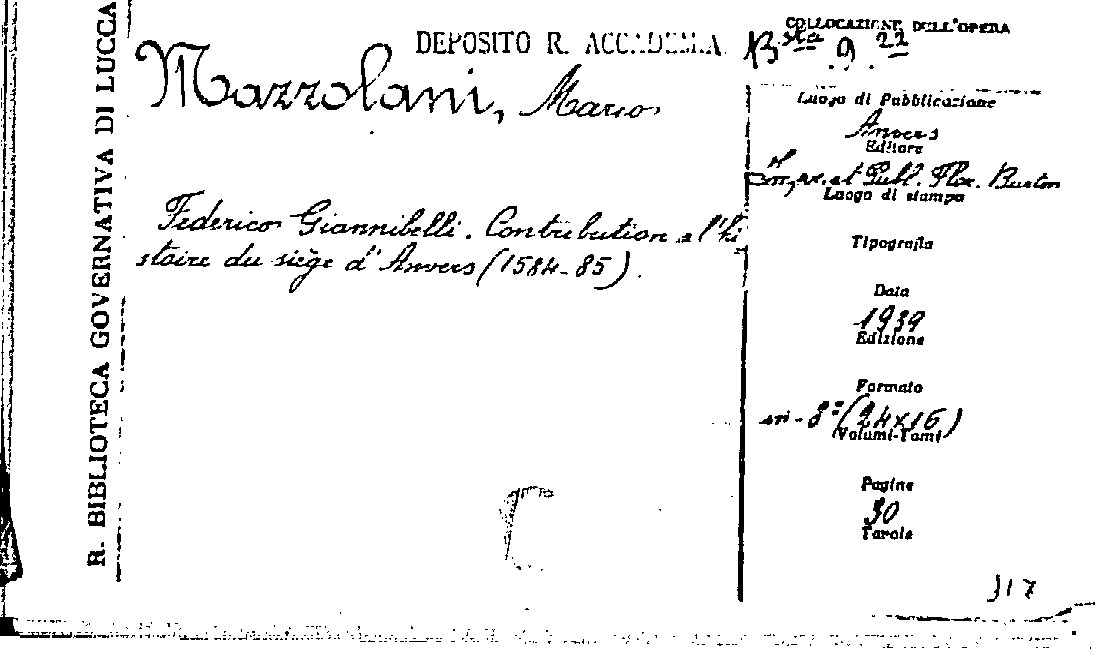 R. BIBLIOTECA GOVERNATIVA DI LUCCA
DEPOSITO R. ACCADEMIA
COLLOCAZIONE DELL'OPERA
Bsta 9. 22
Mazzolani, Mario
Federico Giannibelli. Contribution a l'hi
stoire du siège d'Anvers (1584-85).
Luogo di Pubblicazione
Anvers
Editore
et Publ. Flor. Burton
Luogo di stampa
Tipografia
Data
1939
Edizione
Formato
in-8° (24x16)
(Volumi-Tomi)
Pagine
30
Tavole
317